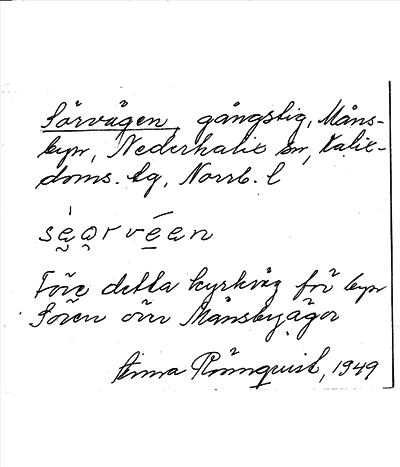 Sörvägen, gångstig, Måns-
byn, Nederkalix sn, Kalix
doms. lg, Norrb. l
Före detta kyrkväg för byn
Sören över Månsbyägor
Anna Rönnquist, 1949